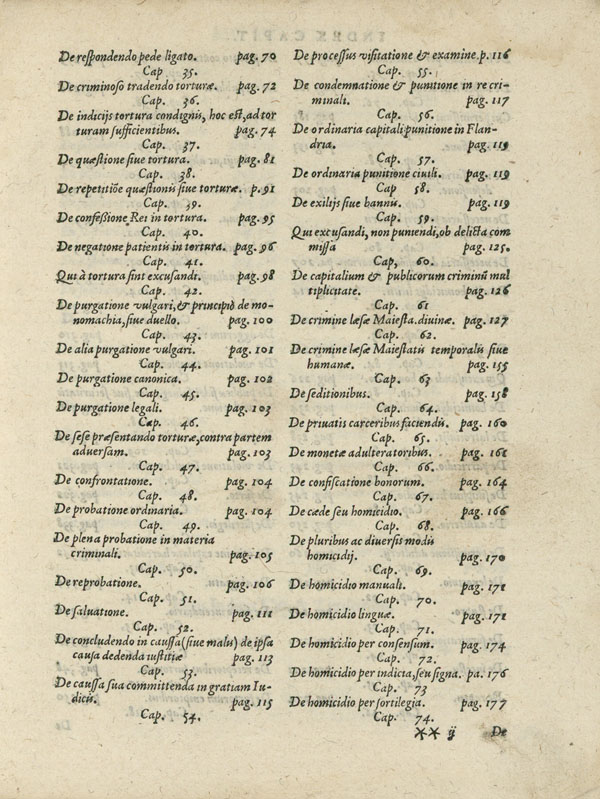 De respondendo pede ligato. pag. 70
Cap 35.
De criminoso tradendo torturæ. pag. 72
Cap. 36.
De indicijs tortura condignis, hoc est, ad tor
turam sufficientibus. pag. 74
Cap. 37.
De quæstione siue tortura. pag. 81
Cap. 38.
De repetitiõe quæstionis siue torturæ. p. 91
Cap. 39.
De confeßione Rei in tortura. pag. 95
Cap. 40.
De negatione patientis in tortura. pag. 96
Cap. 41.
Qui à tortura sint excusandi. pag. 98
Cap. 42.
De purgatione vulgari, & principiò de mo-
nomachia, siue duello. pag. 100
Cap. 43.
De alia purgatione vulgari. pag. 101
Cap. 44.
De purgatione canonica. pag. 102
Cap. 45.
De purgatione legali. pag. 103
Cap. 46.
De sese præsentando torturæ, contra partem
aduersam. pag. 103
Cap. 47.
De confrontatione. pag. 104
Cap. 48.
De probatione ordinaria. pag. 104
Cap. 49.
De plena probatione in materia
criminali. pag. 105
Cap. 50.
De reprobatione. pag. 106
Cap. 51.
De saluatione. pag. 111
Cap. 52.
De concludendo in caussa (siue malis) de ipsa
causa dedenda iustitiæ pag. 113
Cap. 53.
De caussa sua committenda in gratiam Iu-
dicis. pag. 115
Cap. 54.
De processus visitatione & examine. p. 116
Cap. 55.
De condemnatione & punitione in re cri-
minali. pag. 117
Cap. 56.
De ordinaria capitali punitione in Flan-
dria. pag. 119
Cap. 57.
De ordinaria punitione ciuili. pag. 119
Cap 58.
De exilijs siue bannis. pag. 119
Cap. 59.
Qui excusandi, non puniendi, ob delicta com
missa pag. 125.
Cap, 60.
De capitalium & publicorum criminũ mul
tiplicitate. pag. 126
Cap. 61
De crimine læsæ Maiesta. diuinæ. pag. 127
Cap. 62.
De crimine læsæ Maiestatis temporalis siue
humanæ. pag. 155
Cap. 63
De seditionibus. pag. 158
Cap. 64.
De priuatis carceribus faciendis. pag. 160
Cap. 65.
De monetæ adulteratoribus. pag. 161
Cap. 66.
De confiscatione bonorum. pag. 164
Cap. 67.
De cæde seu homicidio. pag. 166
Cap. 68.
De pluribus ac diuersis modis
homicidij. pag. 170
Cap. 69.
De homicidio manuali. pag. 171
Cap. 70.
De homicidio linguæ. pag. 171
Cap. 71.
De homicidio per consensum. pag. 174
Cap. 72.
De homicidio per indicia, seu signa. pa. 176
Cap. 73
De homicidio per sortilegia. pag. 177
Cap. 74.
** ij De